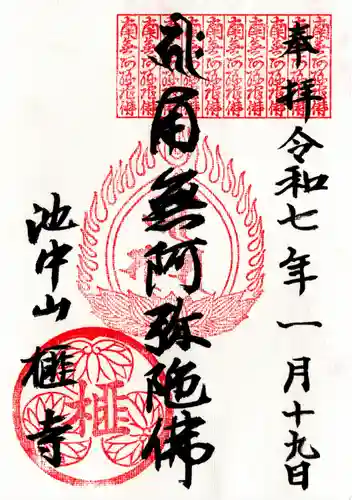 奉拝
令和七年一月十九日
南無阿弥陀佛
池中山
榧寺
榧